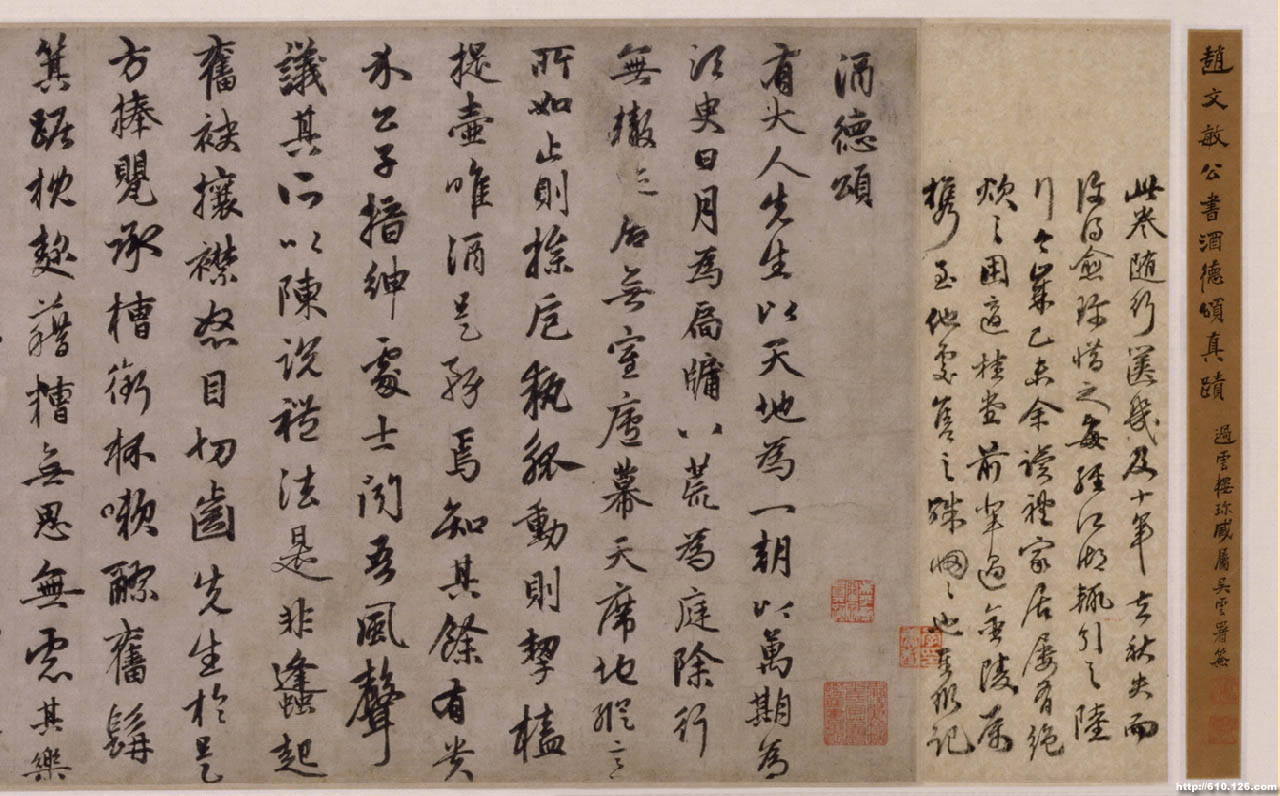 趙文敏公書酒德頌真蹟
過雲樓珍藏屬吳雲署簽
此卷随行篋幾及十年去秋失而
復得愈珍惜之每經江湖輒引之陸
行歲己未余讀禮家居屢有絶
炊之困適桂堂前輩過金陵
携至他處售之殊也記
酒德頌
有大人先生以天地為一朝以萬期為
須臾日月為扃牖八荒為庭除行
無轍迹居無室廬幕天席地縱意
所如止則操巵執觚動則挈榼
提壺唯酒是務焉知其餘有貴
介公子搢紳處士聞吾風聲
議其所以陳說禮法是非蠭起
奮袂攘襟怒目切齒先生於是
方捧甖承槽銜杯嗽醪奮髯
箕踞枕麴藉糟無思無慮其樂
http://610.126.com